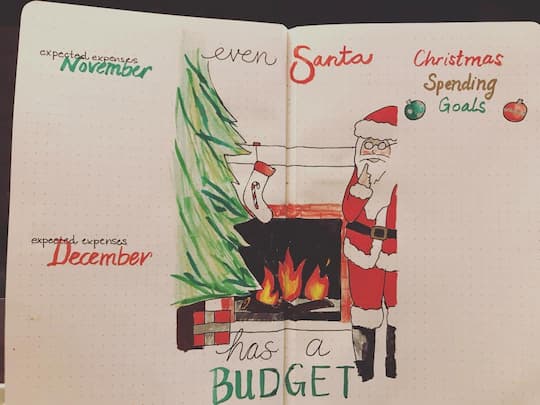 expected expenses
November
expected expenses
December
even Santa
has a
BUDGET
Christmas
Spending
Goals